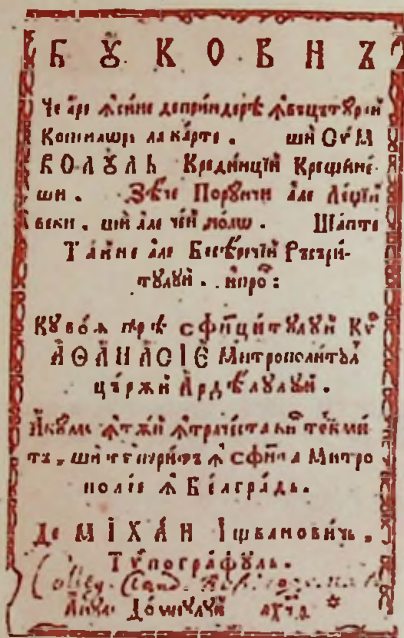 БꙊКОВНЪ
Че аре ꙟсине деприндерѣ ꙟвъцътꙋрей
Копиилѡр ла карте. ши СѴМ
ВОЛꙊЛЬ Крединций Крещинѣ
ши. Зѣче Порꙋнчи але Леџій
веки. ший але чей ноаш. Шапте
Тайне але Бесѣречій Рѫсѫри
тꙋлꙋй. ипро:
Кꙋ воѧ прѣ сфинцитꙋлꙋй Кѵ
АѲАНАСІЕ Митрополитꙋл
цѫржи Ардѣлꙋлꙋй.
Акꙋм ꙟтѫй ꙟтрачеста кип токми
тъ, ши типѫритъ ꙟ сфинта Митро
поліе ꙟ Бѣлград.
Де МІХАИ Іщвановичь,
Тѷпографꙋль.
Анꙋл Домнꙋлꙋй